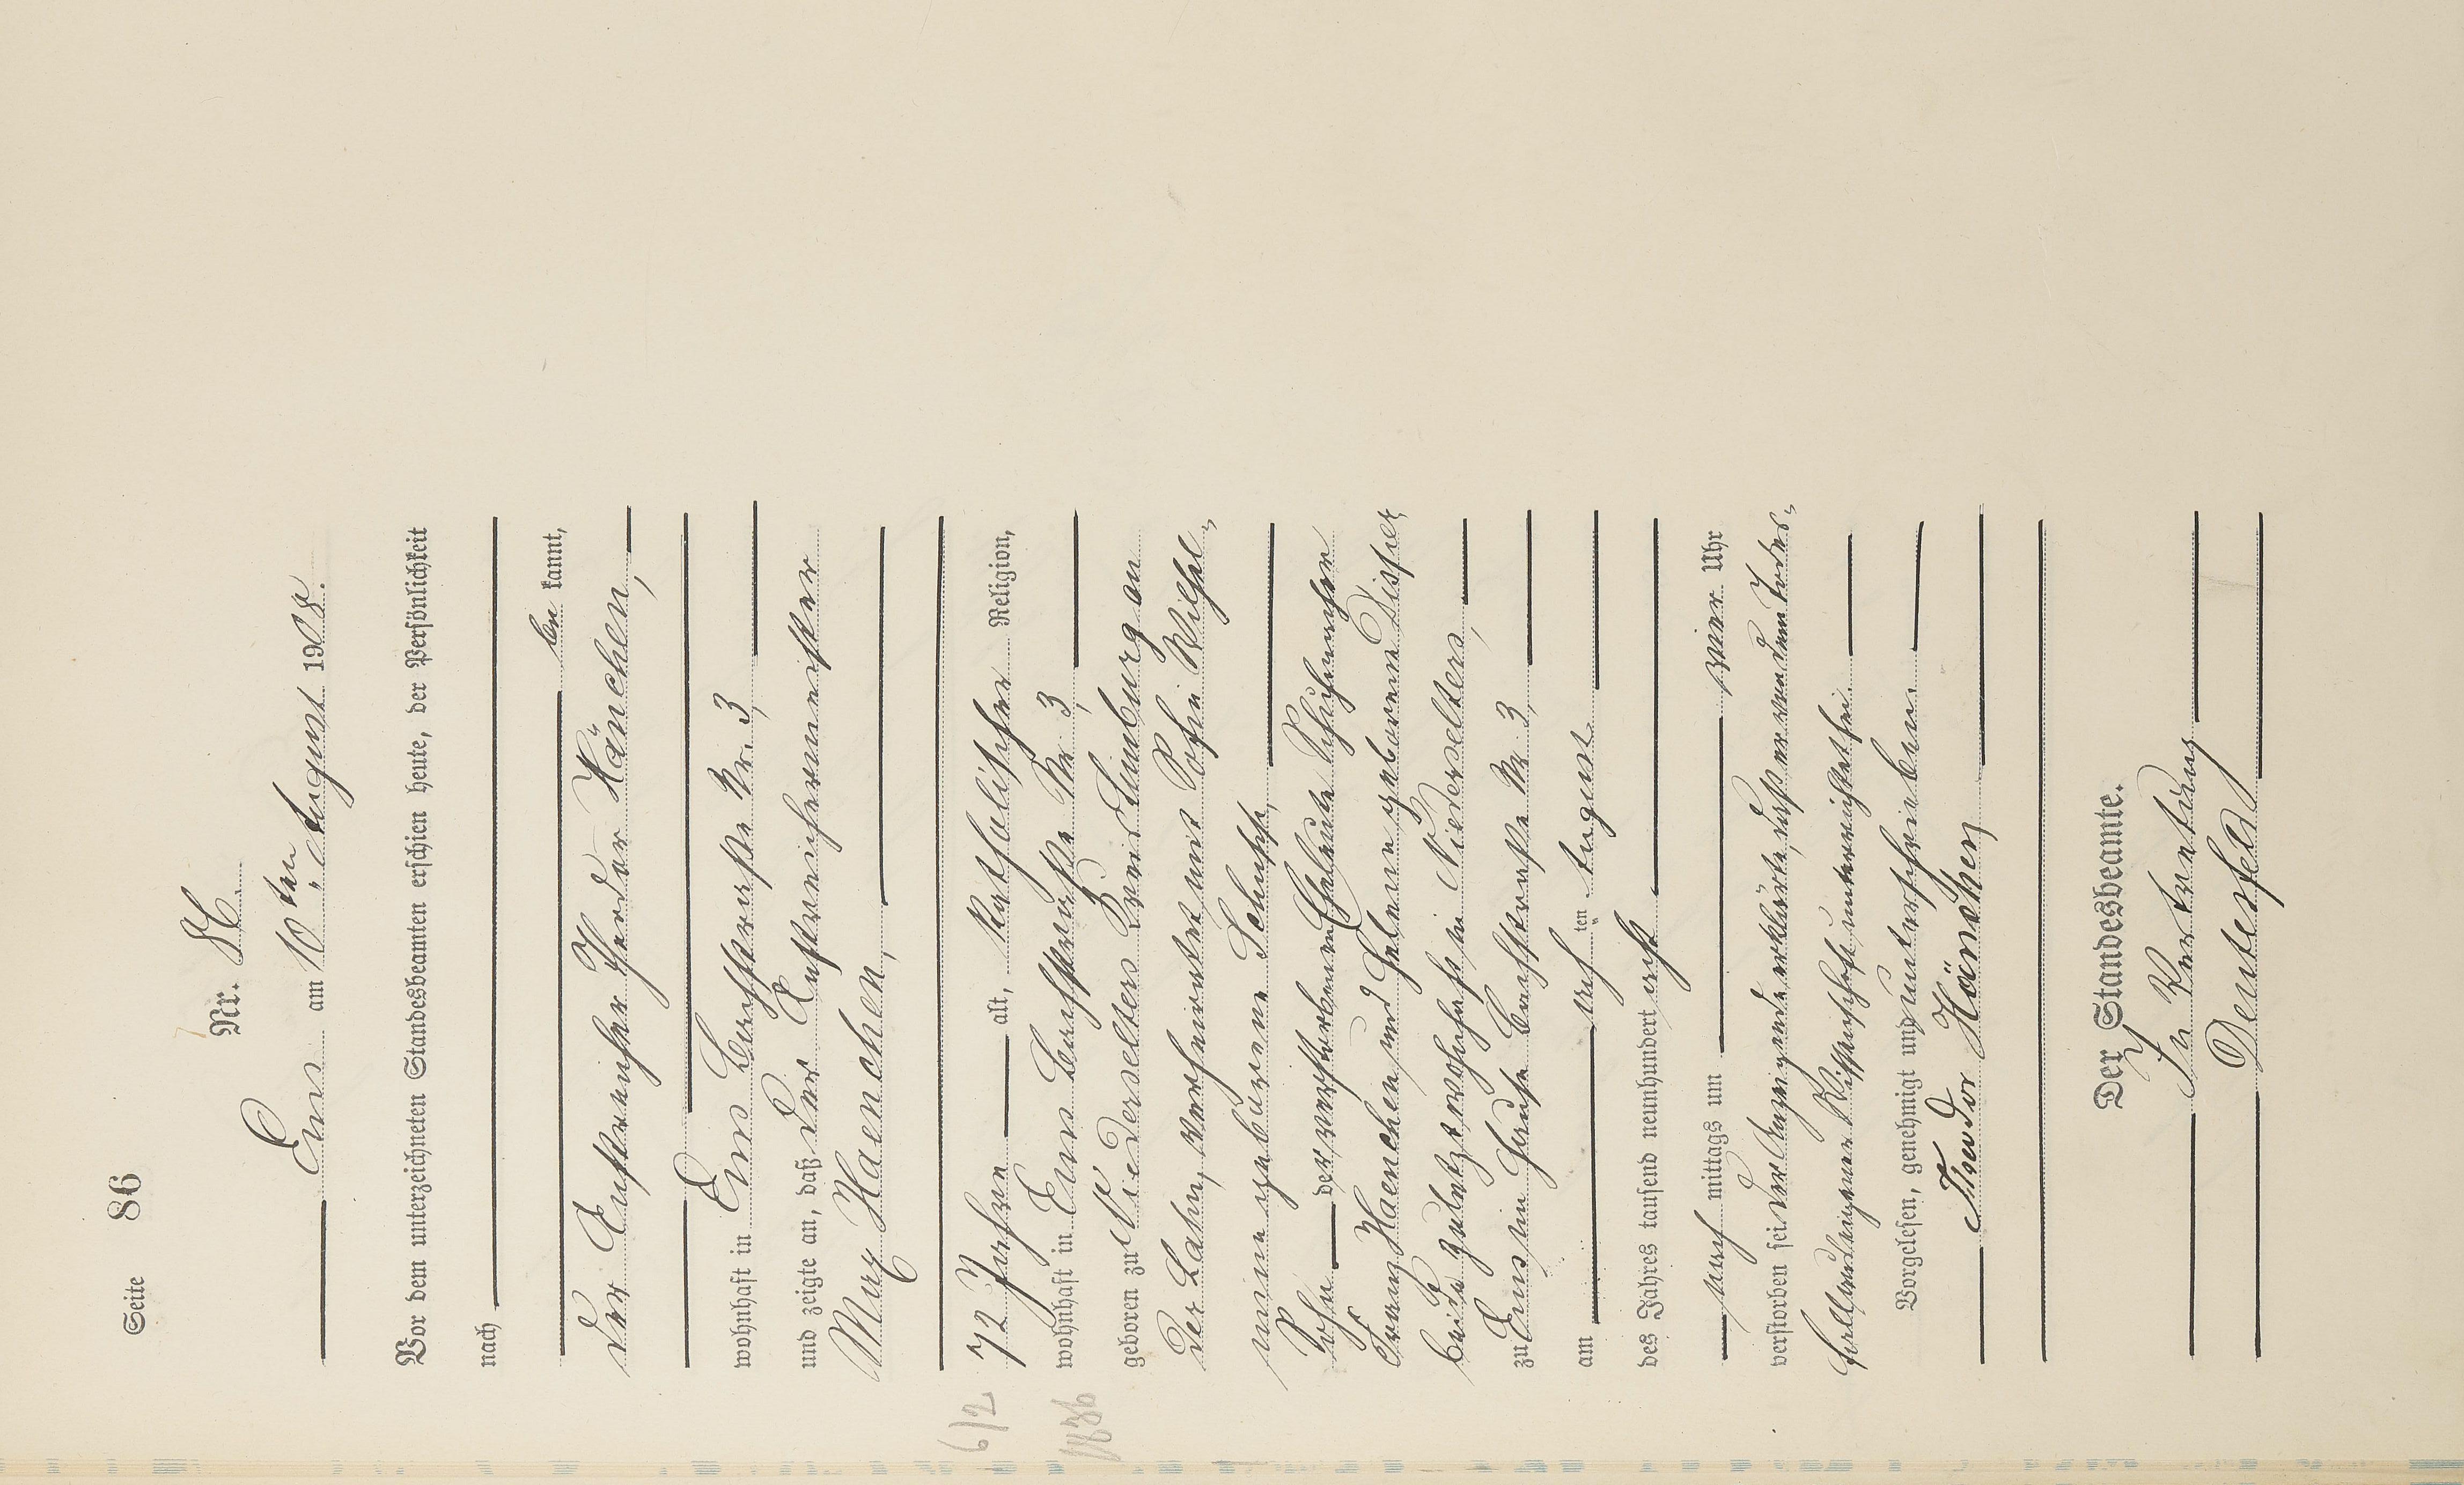 Seite 86
Nr. 86.
Ems am 10ten August 1908.
Vor dem unterzeichneten Standesbeamten erschien heute, der Persönlichkeit
nach
be kannt,
der Anstreicher Theodor Hänchen,
wohnhaft in Ems Bachstraße Nr. 3,
und zeigte an, daß der Anstreichermeister
Max Haenchen,
6/2
72 Jahre alt, katholischer Religion,
1836
wohnhaft in Ems Bachstraße Nr. 3,
geboren zu Niederselters Kreis Limburg an
der Lahn, verheiratet mit Sofie Wilhel-
mine geborene Schupp,
Sohn der verstorbenen Eheleute Schuhmacher
Franz Haenchen und Helene geborene
beide zuletzt wohnhaft in Niederselters,
zu Ems im Hause Bachstraße Nr. 3,
am acht ten August
des Jahres tausend neunhundert acht
nach mittags um vier Uhr
verstorben sei. Der Anzeigende erklärte, daß er von dem Todes-
falle aus eigener Wissenschaft unterrichtet sei.
Vorgelesen, genehmigt und unterschrieben
Theodor Hänchen
Der Standesbeamte.
In Vertretung
Deutesfeld